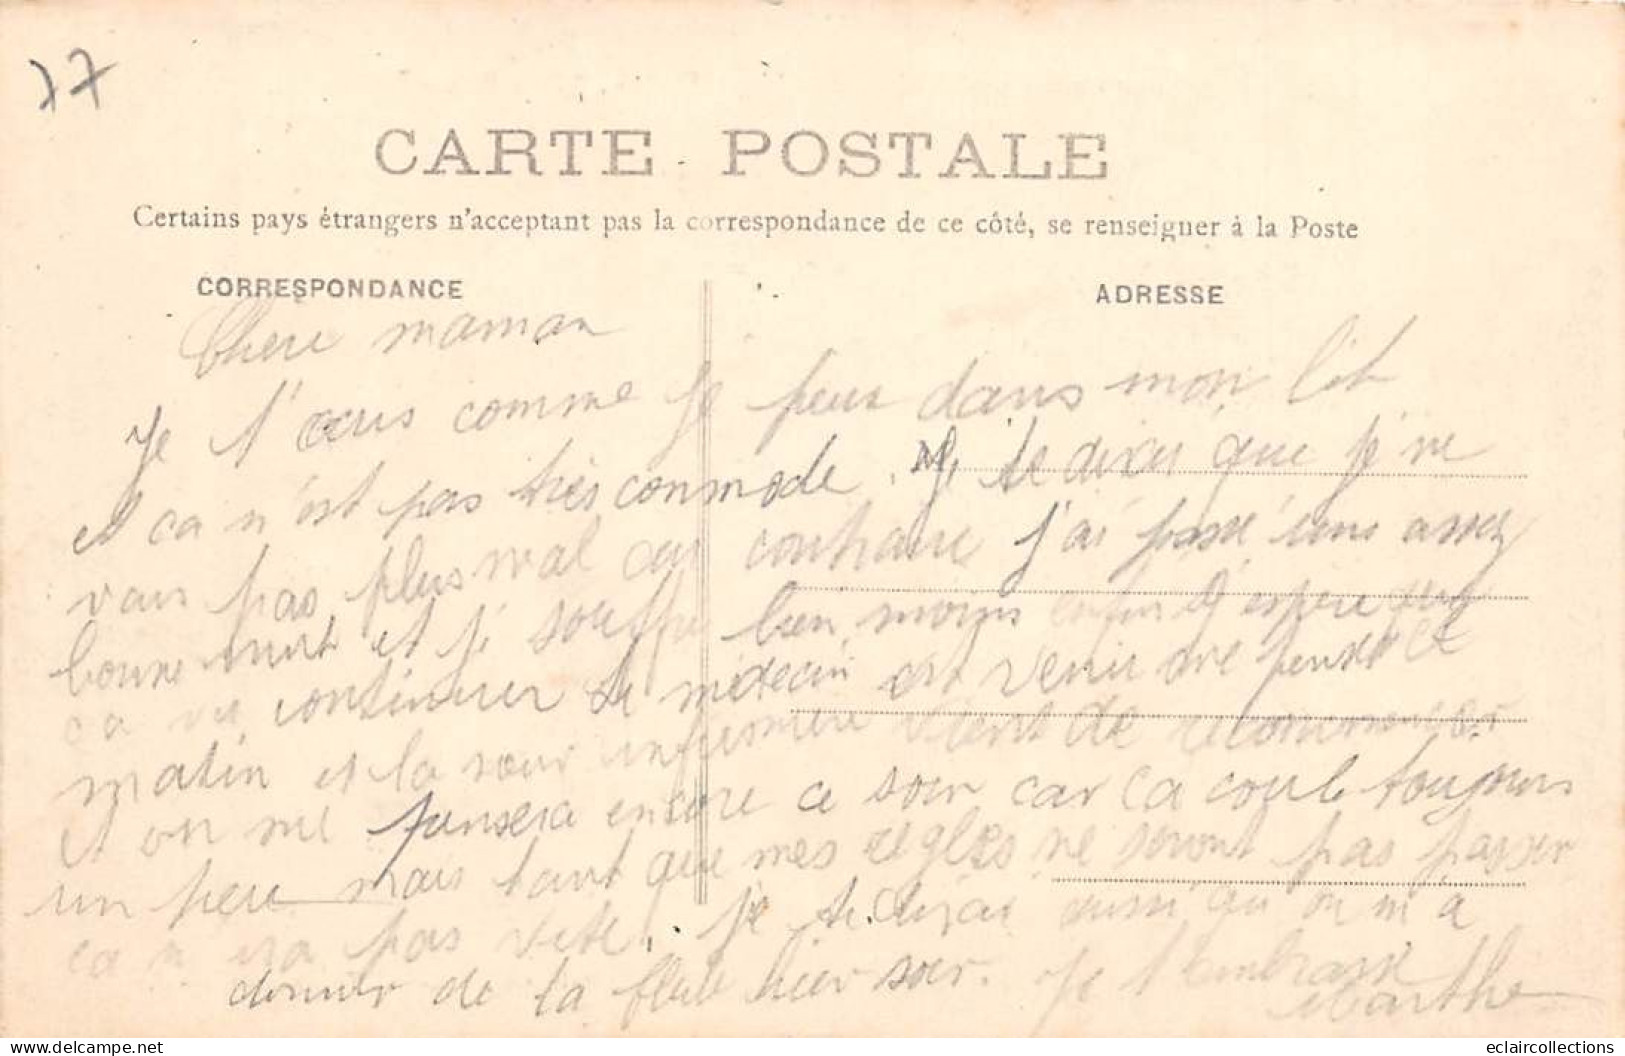 77
CARTE POSTALE
Certains pays étrangers n'acceptant pas la correspondance de ce côté, se renseigner à la Poste
CORRESPONDANCE
ADRESSE
Chere maman
Je t'ecris comme je peux dans mon lit
et ca n'est pas très commode. Je te dirai que je ne
vais pas plus mal au contraire j'ai passé une assez
bonne nuit et je souffre bien moins enfin j'espere que
ca va continuer le médecin est venu me penser ce
matin et la sœur infirmière vient de recommencer
et on me pensera encore ce soir car ca coule toujours
un peu mais tant que mes règles ne seront pas passer
ca n'ira pas vite. je te dirai aussi qu'on m'a
donner de la hier soir. Je t'embrasse
Marthe
delcampe.net
eclaircollections